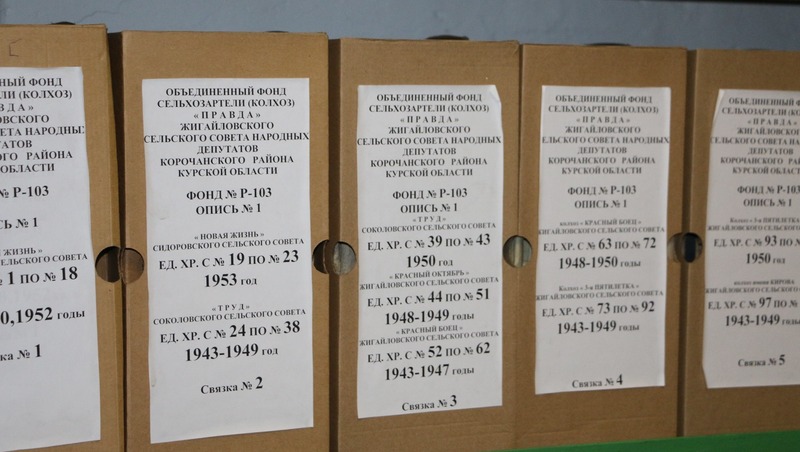 НЫЙ ФОНД
ЛИ (КОЛХОЗ)
ВДА»
ОВСКОГО
СОВЕТА НАРОДНЫХ
ТАТОВ
КОГО РАЙОНА
ОБЛАСТИ
№ Р-103
ИСЬ № 1
ЖИЗНЬ»
СЕЛЬСКОГО СОВЕТА
№ 1 ПО № 18
0,1952 годы
зка № 1
ОБЪЕДИНЕННЫЙ ФОНД
СЕЛЬХОЗАРТЕЛИ (КОЛХОЗ)
«ПРАВДА»
ЖИГАЙЛОВСКОГО
СЕЛЬСКОГО СОВЕТА НАРОДНЫХ
ДЕПУТАТОВ
КОРОЧАНСКОГО РАЙОНА
КУРСКОЙ ОБЛАСТИ
ФОНД № Р-103
ОПИСЬ № 1
«НОВАЯ ЖИЗНЬ»
СИДОРОВСКОГО СЕЛЬСКОГО СОВЕТА
ЕД. ХР. С № 19 ПО № 23
1953 год
«ТРУД»
СОКОЛОВСКОГО СЕЛЬСКОГО СОВЕТА
ЕД. ХР. С № 24 ПО № 38
1943-1949 год
Связка № 2
ОБЪЕДИНЕННЫЙ ФОНД
СЕЛЬХОЗАРТЕЛИ (КОЛХОЗ)
«ПРАВДА»
ЖИГАЙЛОВСКОГО
СЕЛЬСКОГО СОВЕТА НАРОДНЫХ
ДЕПУТАТОВ
КОРОЧАНСКОГО РАЙОНА
КУРСКОЙ ОБЛАСТИ
ФОНД № Р-103
ОПИСЬ № 1
«ТРУД»
СОКОЛОВСКОГО СЕЛЬСКОГО СОВЕТА
ЕД. ХР. С № 39 ПО № 43
1950 год
«КРАСНЫЙ ОКТЯБРЬ»
ЖИГАЙЛОВСКОГО СЕЛЬСКОГО СОВЕТА
ЕД. ХР. С № 44 ПО № 51
1948-1949 годы
«КРАСНЫЙ БОЕЦ»
ЖИГАЙЛОВСКОГО СЕЛЬСКОГО СОВЕТА
ЕД. ХР. С № 52 ПО № 62
1943-1947 годы
Связка № 3
ОБЪЕДИНЕННЫЙ ФОНД
СЕЛЬХОЗАРТЕЛИ (КОЛХОЗ)
«ПРАВДА»
ЖИГАЙЛОВСКОГО
ЕЛЬСКОГО СОВЕТА НАРОДНЫХ
ДЕПУТАТОВ
КОРОЧАНСКОГО РАЙОНА
КУРСКОЙ ОБЛАСТИ
ФОНД № Р-103
ОПИСЬ № 1
колхоз «КРАСНЫЙ БОЕЦ»
ЖИГАЙЛОВСКОГО СЕЛЬСКОГО СОВЕТА
ЕД. ХР. С № 63 ПО № 72
1948-1950 годы
Колхоз «3-я ПЯТИЛЕТКА»
ЖИГАЙЛОВСКОГО СЕЛЬСКОГО СОВЕТА
ЕД. ХР. С № 73 ПО № 92
1943-1949 годы
Связка № 4
ОБЪЕДИНЕННЫЙ
СЕЛЬХОЗАРТЕЛИ (К
«ПРАВДА
ЖИГАЙЛОВСК
СЕЛЬСКОГО СОВЕТА
ДЕПУТАТО
КОРОЧАНСКОГО
КУРСКОЙ ОБЛ
ФОНД № Р-
ОПИСЬ №
колхоз «3-я ПЯТИЛЕТК
ЖИГАЙЛОВСКОГО СЕЛЬСКО
ЕД. ХР. С № 93 ПО
1950 год
колхоз имени КИРОВА
ЖИГАЙЛОВСКОГО СЕЛЬСКО
ЕД. ХР. С № 97 ПО №
1943-1949 годы
Связка № 5